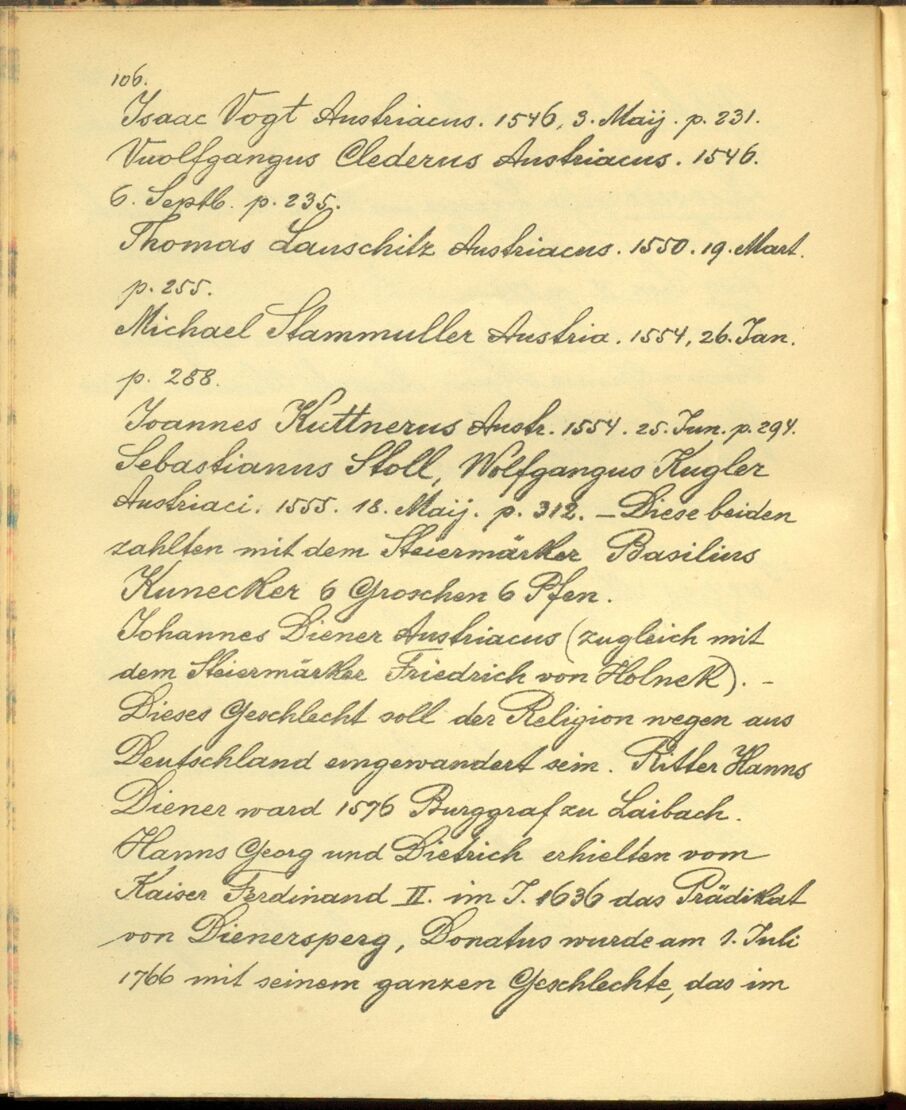 106.
Isaac Vogt Austriacus. 1546, 3. Maij. p. 231.
Vuolfgangus Clederus Austriacus. 1546.
6. Septb. p. 235.
Thomas Lauschitz Austriacus. 1550. 19. Mart.
p. 255.
Michael Stammuller Austria. 1554, 26. Jan.
p. 288.
Joannes Kuttnerus Austr. 1554. 25. Jun. p. 294.
Sebastianus Stoll, Wolfgangus Kugler
Austriaci. 1555. 18. Maij. p. 312. – Diese beiden
zahlten mit dem Steiermärker Basilius
Kunecker 6 Groschen 6 Pfen.
Johannes Diener Austriacus (zugleich mit
dem Steiermärker Friedrich von Holnek). –
Dieses Geschlecht soll der Religion wegen aus
Deutschland eingewandert sein. Ritter Hanns
Diener ward 1576 Burggraf zu Laibach.
Hanns Georg und Dietrich erhielten vom
Kaiser Ferdinand II. im J. 1636 das Prädikat
von Dienersperg, Donatus wurde am 1. Juli
1766 mit seinem ganzen Geschlechte, das im